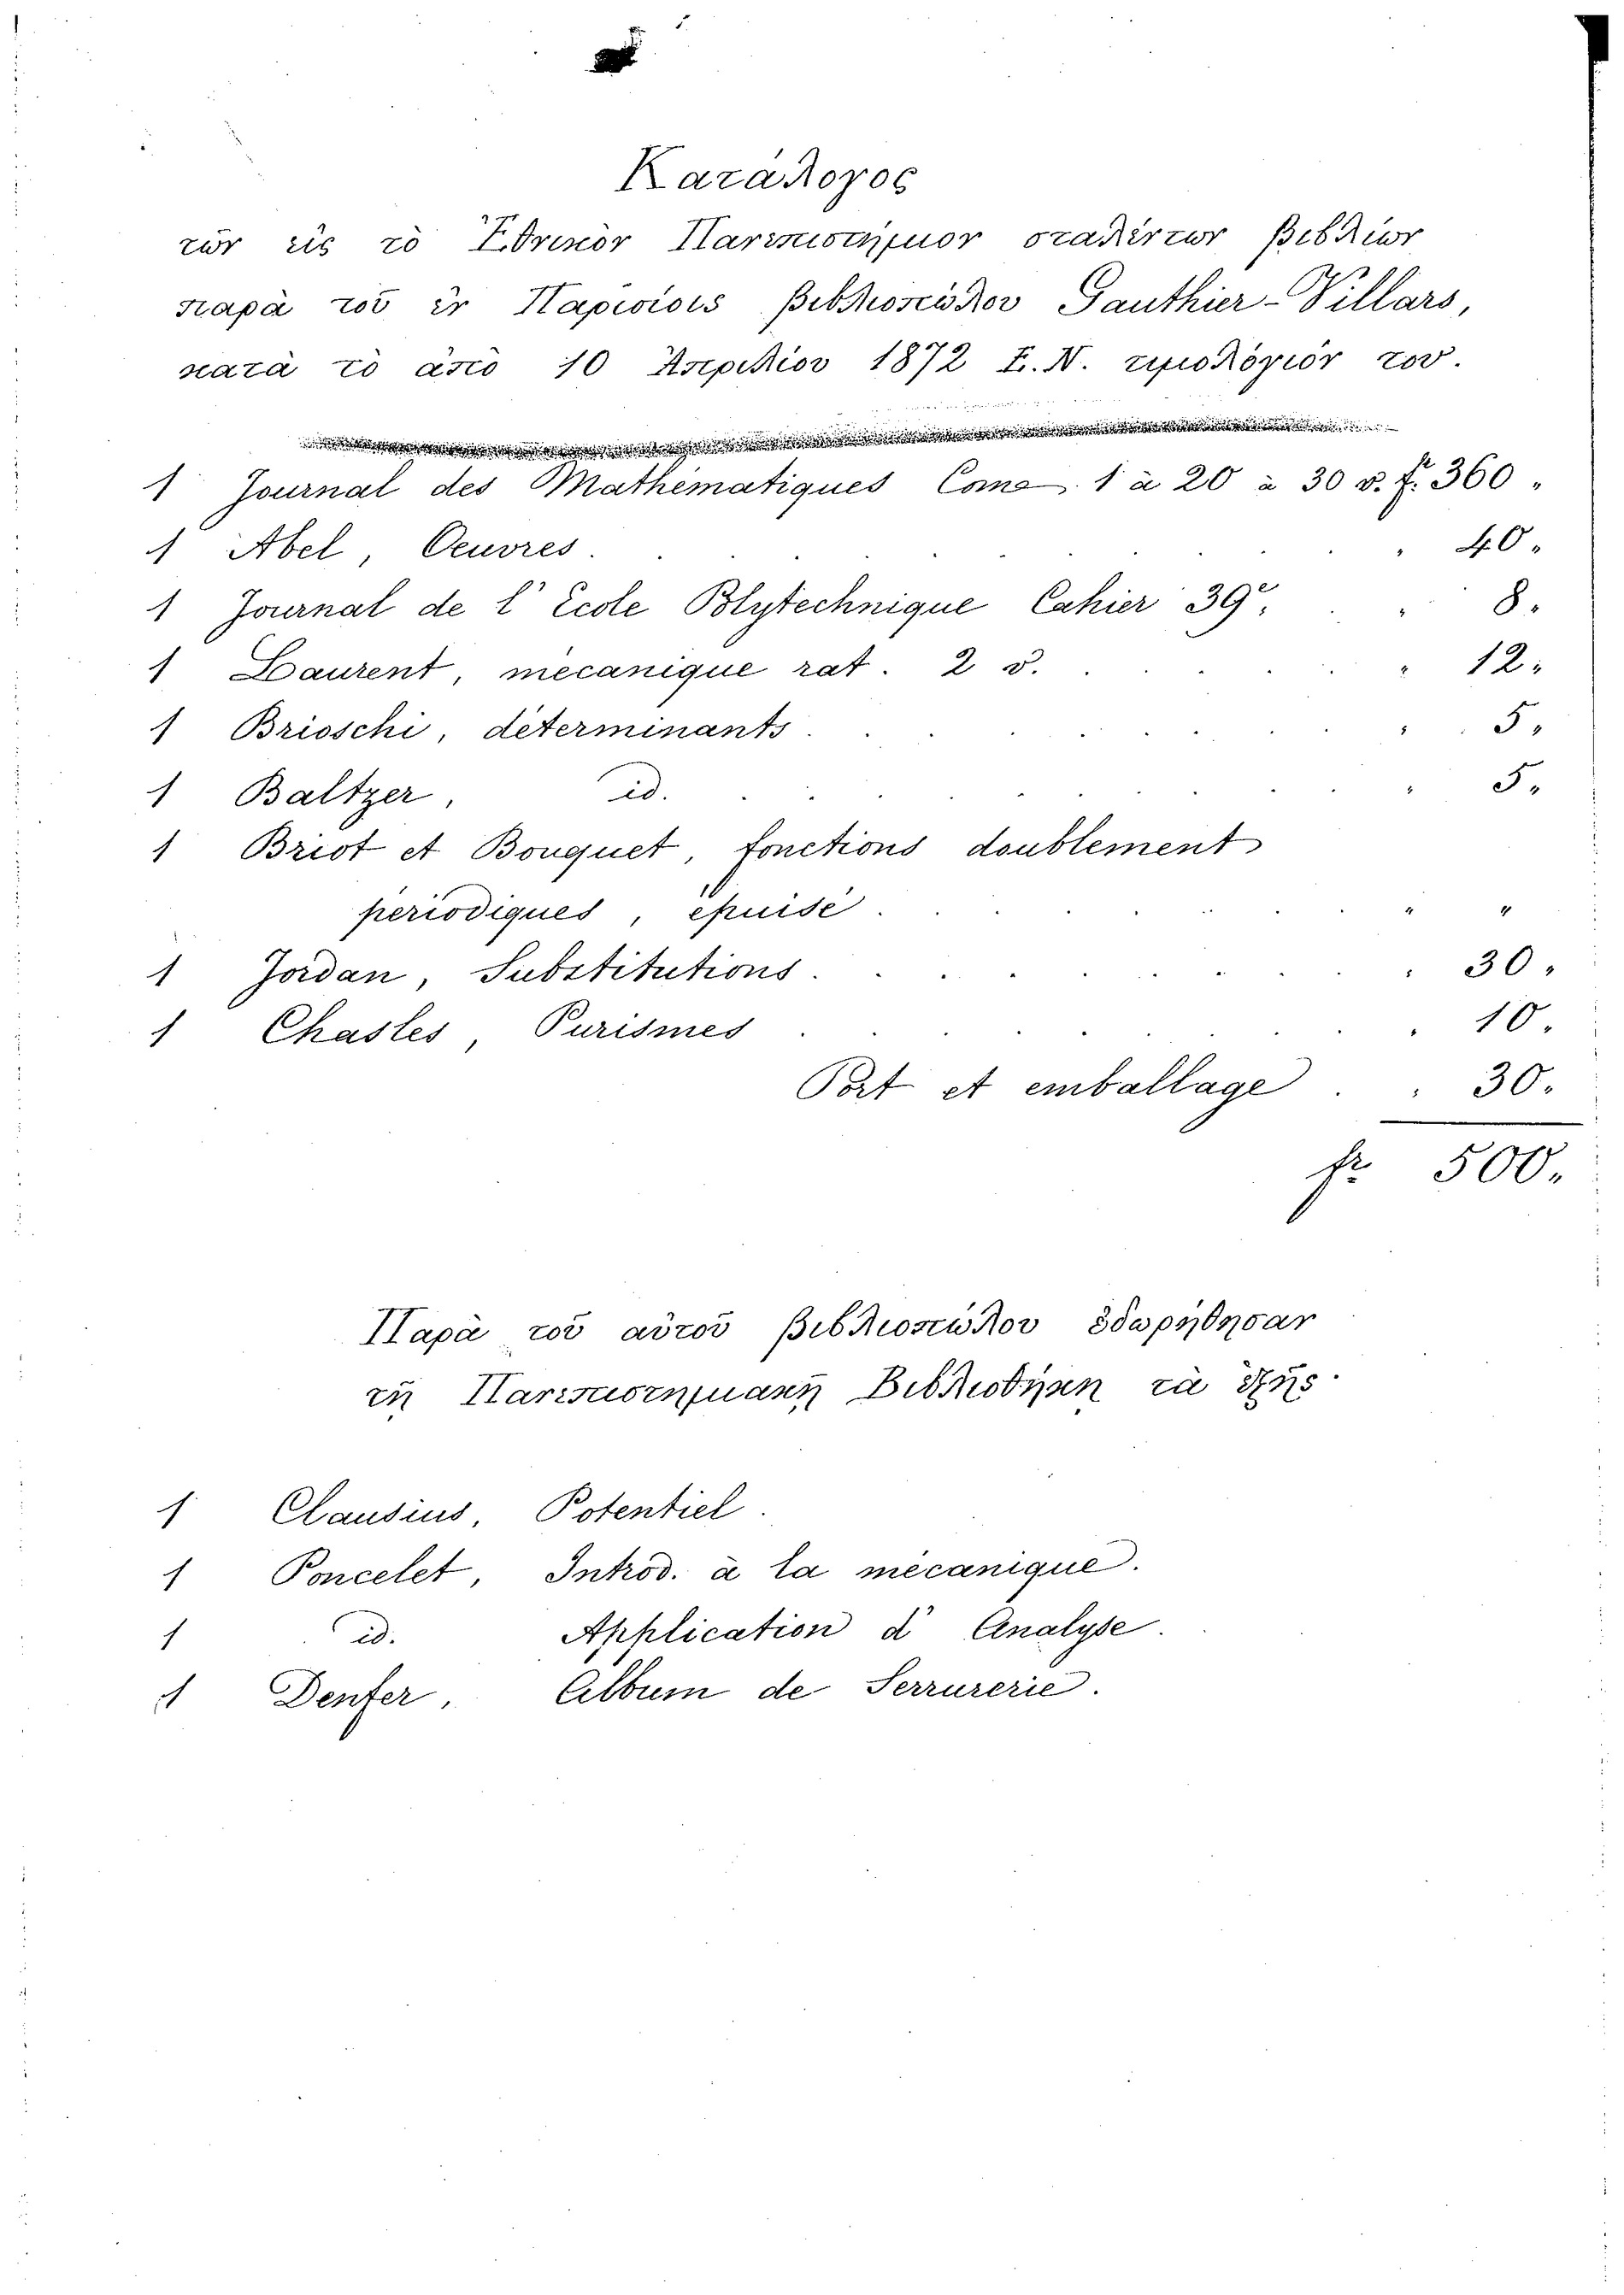 Κατάλογος
τῶν εἰς τὸ Ἐθνικὸν Πανεπιστήμιον σταλέντων βιβλίων
παρὰ τοῦ ἐν Παρισίοις βιβλιοπώλου Gauthier-Villars,
κατὰ τὸ ἀπὸ 10 Ἀπριλίου 1872 Ε.Ν. τιμολόγιόν του.
1 Journal des Mathématiques Tome 1 à 20 à 30 v. fr. 360 "
1 Abel, Oeuvres . . . . " 40 "
1 Journal de l' École Polytechnique Cahier 39e, . . " 8 "
1 Laurent, mécanique rat. 2 v. . . . . " 12 "
1 Brioschi, déterminants . . . . " 5 "
1 Baltzer, id. . . . . " 5 "
1 Briot et Bouquet, fonctions doublement
périodiques, épuisé . . . . " "
1 Jordan, Substitutions . . . . " 30 "
1 Chasles, Purismes . . . . " 10 "
Port et emballage . " 30 "
fr 500 "
Παρὰ τοῦ αὐτοῦ βιβλιοπώλου ἐδωρήθησαν
τῇ Πανεπιστημιακῇ Βιβλιοθήκῃ τὰ ἑξῆς·
1 Clausius, Potentiel.
1 Poncelet, Introd. à la mécanique.
1 id. Application d' Analyse.
1 Denfer, Album de Serrurerie.